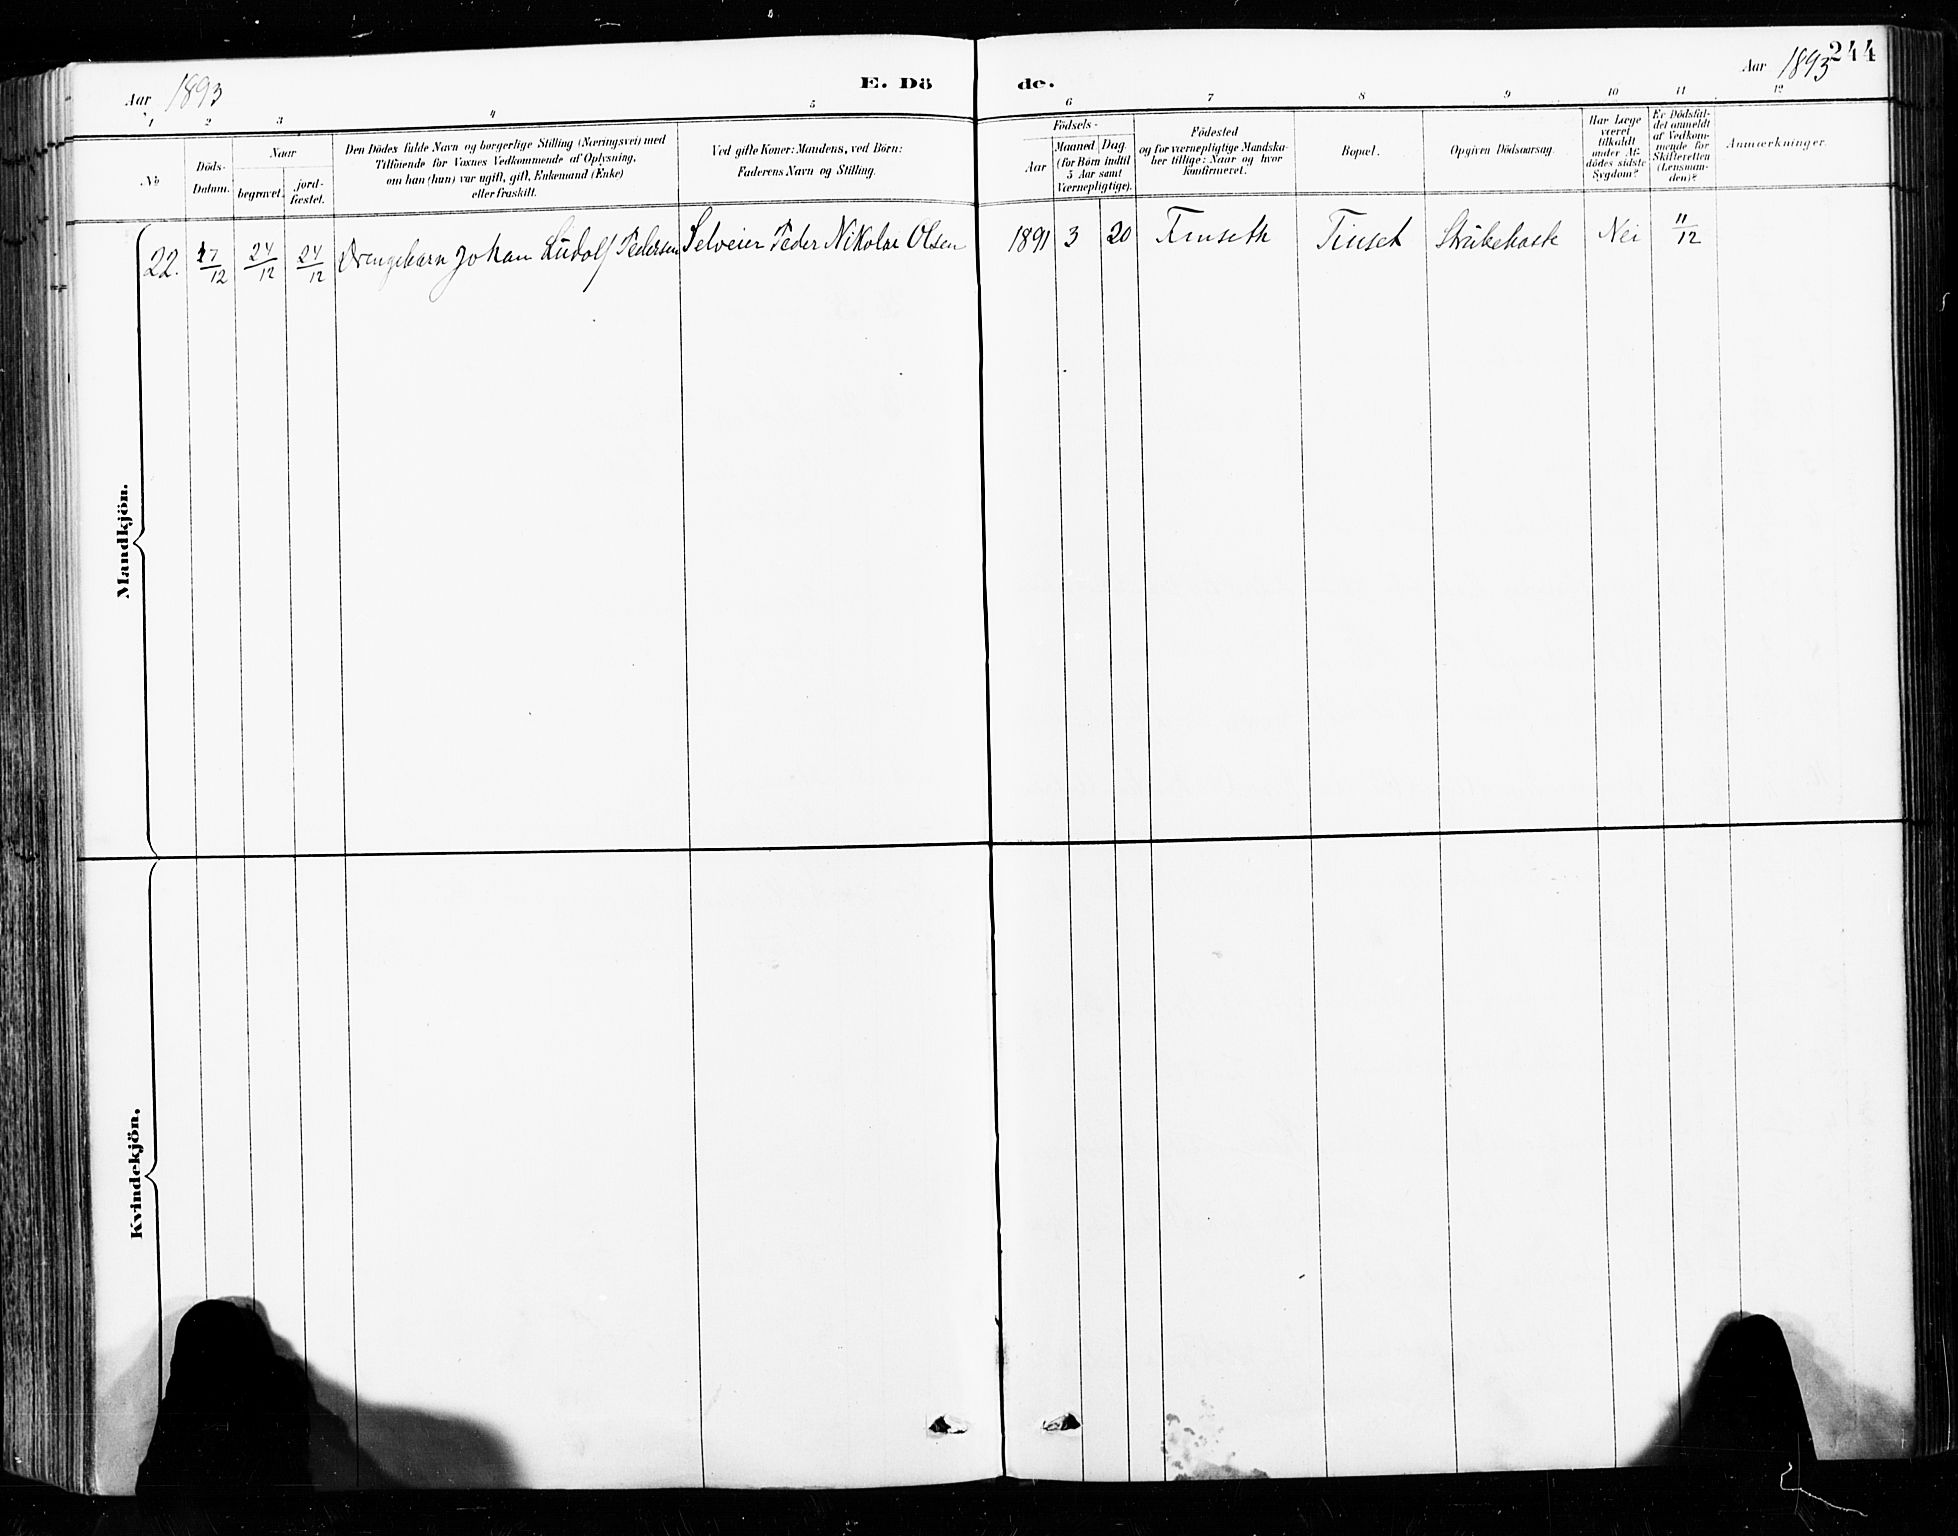 244
Aar 1893
E. Dö
de.
Aar 1893
1 2 3 4 5 6 7 8 9 10 11 12
No
Döds-
Datum.
Naar
begravet.
jord-
fæstet.
Den Dödes fulde Navn og borgerlige Stilling (Næringsvei) med
Tilföiende for Voxnes Vedkommende af Oplysning,
om han (hun) var ugift, gift, Enkemand (Enke)
eller fraskilt.
Ved gifte Koner: Mandens, ved Börn:
Faderens Navn og Stilling.
Födsels-
Aar
Maaned
Dag
(for Börn indtil
5 Aar samt
Værnepligtige).
Födested
og for værnepligtige Mandska-
ber tillige: Naar og hvor
konfirmeret.
Bopæl.
Opgiven Dödsaarsag.
Har Læge
været
tilkaldt
under Af-
dödes sidste
Sygdom?
Er Dödsfal-
det anmeldt
af Vedkom-
mende for
Skifteretten
(Lensman-
den)?
Anmærkninger.
Mandkjön.
22. 7/12 24/12 24/12 Drengebarn Johan Ludolf Pedersen Selveier Peder Nikolai Olsen 1891 3 20 Finseth Finset Strubehoste Nei 11/12
Kvindekjön.